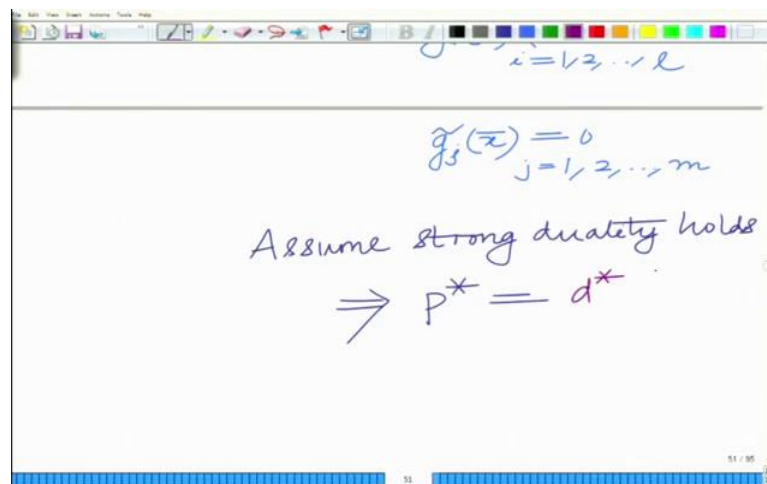 File Edit View Insert Actions Tools Help
i = 1, 2, .., l
g̃ⱼ(x̄) = 0
j = 1, 2, .., m
Assume strong duality holds
⇒ p* = d*
51 / 95
51